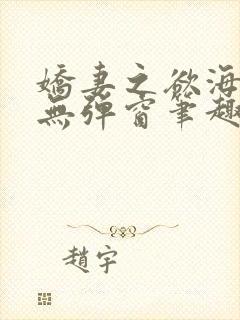 嬌妻之欲海
無彈窗筆趣
趙宇